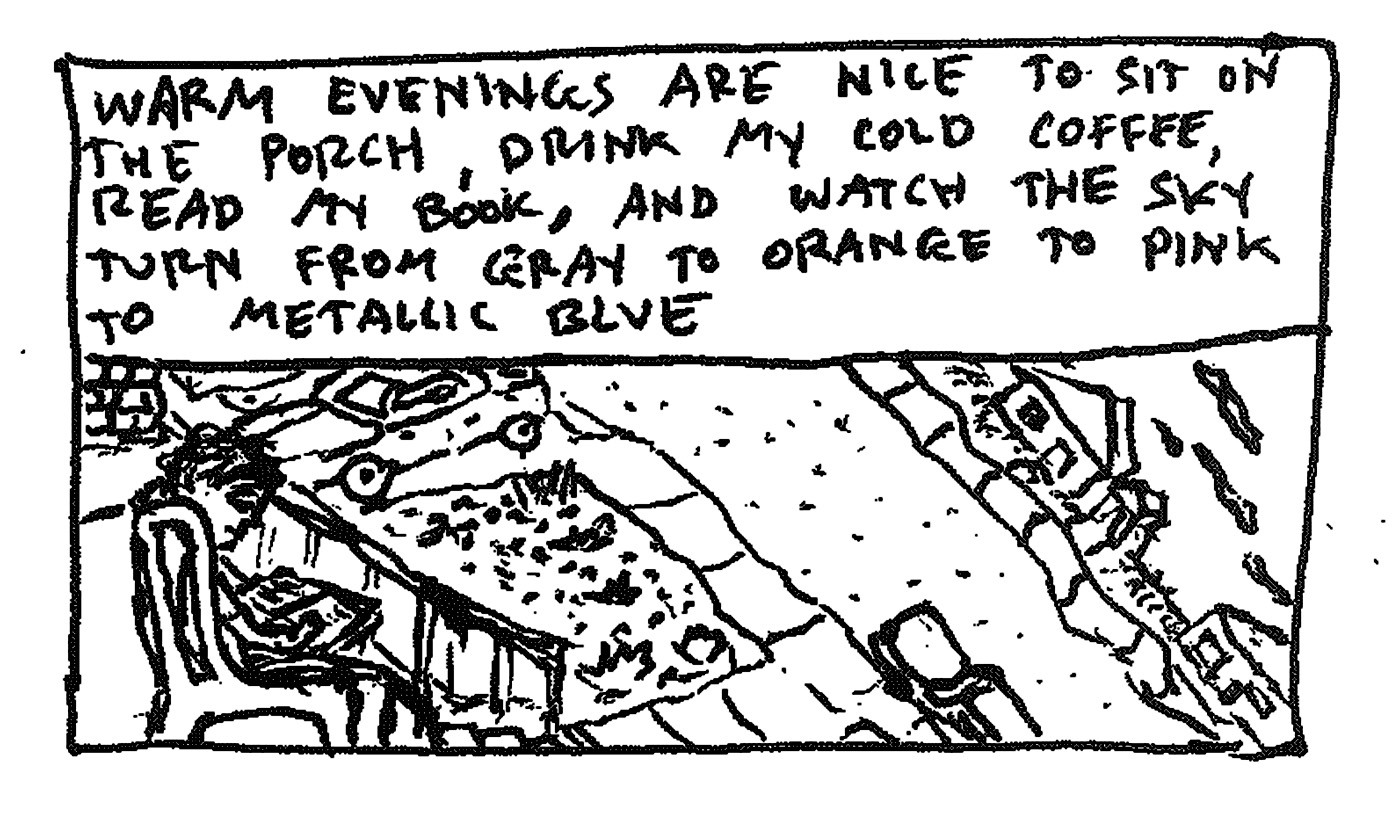 WARM EVENINGS ARE NICE TO SIT ON
THE PORCH, DRINK MY COLD COFFEE,
READ MY BOOK, AND WATCH THE SKY
TURN FROM GRAY TO ORANGE TO PINK
TO METALLIC BLUE